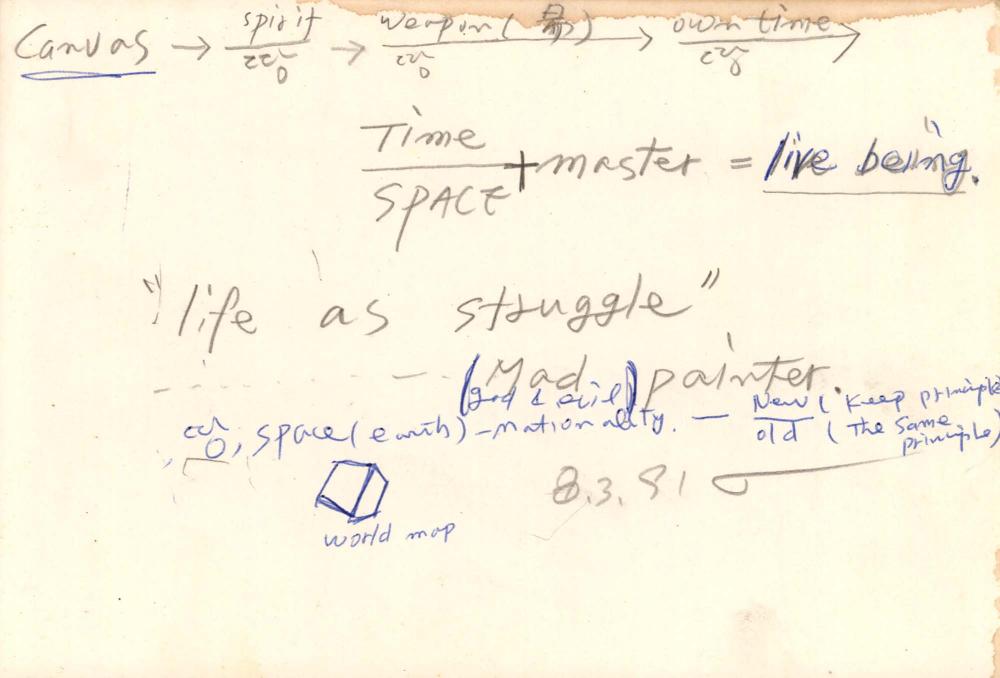 Canvas → spirit → weapon ( ) → own time →
Time
SPACE
+ master = "live beiing".
"life as struggle"
(Mad) painter.
god & evil
, space (earth) - nationality. — New (Keep principle
old (The same
principle)
8.3.91
world map